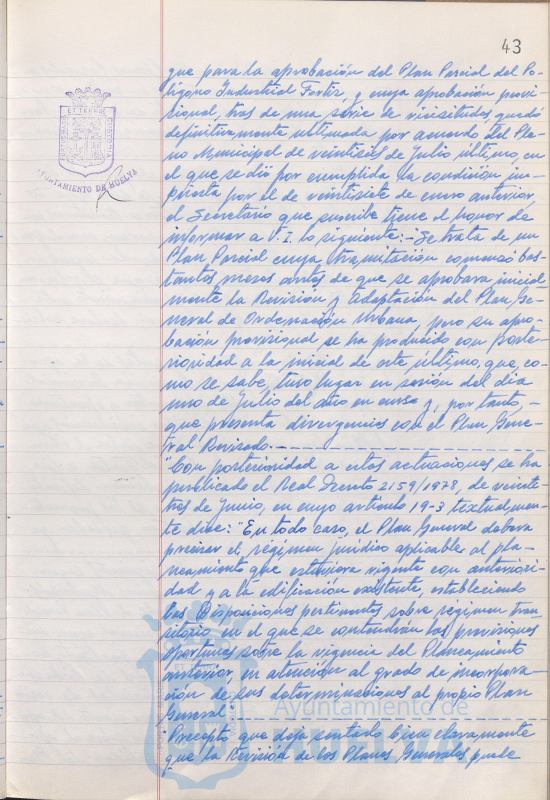 43
que para la aprobación del Plan Parcial del Po-
lígono Industrial Fortiz y cuya aprobación provi-
sional, tras de una serie de vicisitudes, quedó
definitivamente ultimada por acuerdo del Ple-
no Municipal de veintiseis de Julio último, en
el que se dió por cumplida la condición im-
puesta por el de veintisiete de enero anterior,
el Secretario que suscribe tiene el honor de
informar a V. I. lo siguiente: - "Se trata de un
Plan Parcial cuya tramitación comenzó bas-
tantes meses antes de que se aprobara inicial
mente la Revisión y Adaptación del Plan Ge-
neral de Ordenación Urbana pero su apro-
bación provisional se ha producido con poste-
rioridad a la inicial de este último, que, co-
mo se sabe, tuvo lugar en sesión del día
uno de Julio del año en curso y, por tanto, -
que presenta divergencias con el Plan Gene-
ral Revisado. -
"Con posterioridad a estas actuaciones se ha
publicado el Real Decreto 2159/1978, de veinti-
tres de Junio, en cuyo artículo 19-3 textualmen-
te dice: "En todo caso, el Plan General deberá
precisar el régimen jurídico aplicable al pla-
neamiento que estuviera vigente con anteriori-
dad y a la edificación existente, estableciendo
las disposiciones pertinentes sobre régimen tran-
sitorio, en el que se contendrán las previsiones
oportunas sobre la vigencia del Planeamiento
anterior, en atención al grado de incorpora-
ción de sus determinaciones al propio Plan
General -
"Precepto que deja sentado bien claramente
que la Revisión de los Planes Generales puede
AYUNTAMIENTO DE HUELVA
Ayuntamiento de